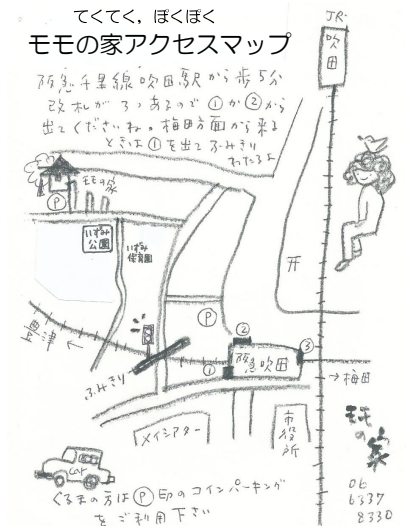 てくてく，ぽくぽく
モモの家アクセスマップ
JR.
吹田
阪急千里線 吹田駅から歩5分
改札が3つあるので①か②から
出てくださいね。梅田方面から来る
ときは①を出てふみきり
わたるよ
モモの家
Ⓟ
いずみ
公園
いずみ
保育園
Ⓟ
②
③
①
阪急吹田
豊津
←
ふみきり
→梅田
メイシアター
市役所
モモの家
06
6337
8330
くるまの方はⓅ印のコインパーキング
をご利用下さい